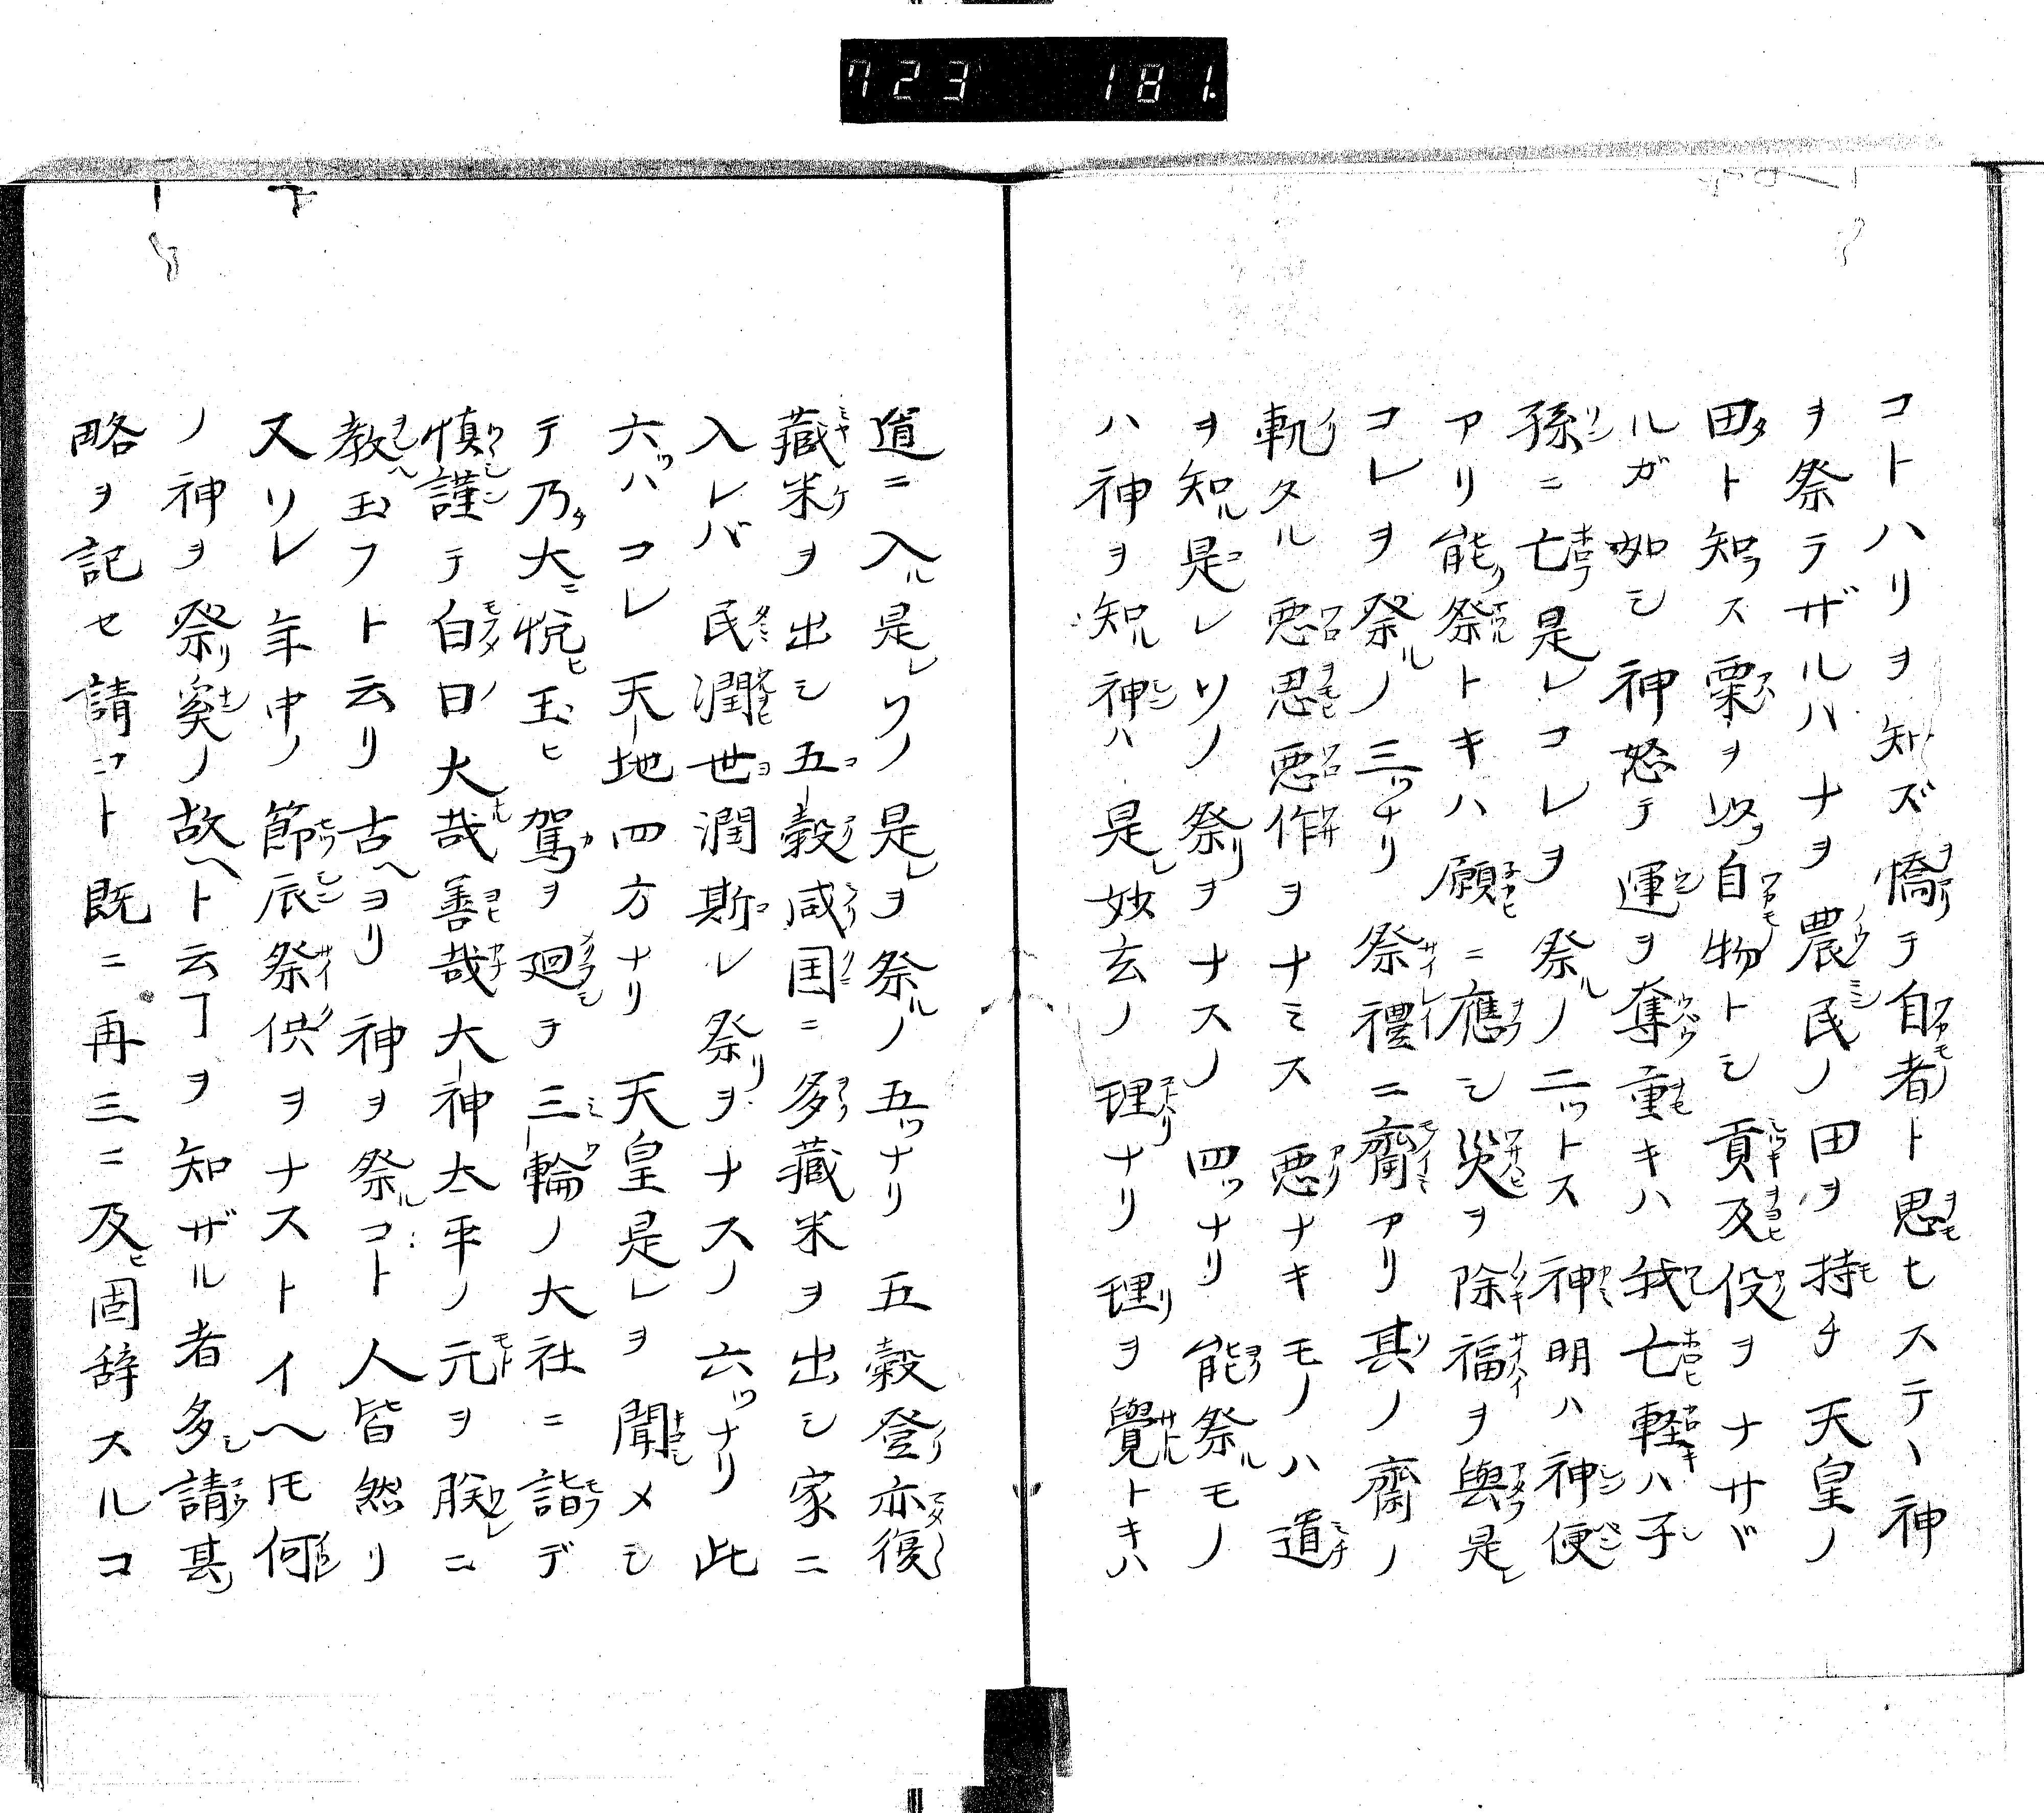 723 181
コトハリヲ知ズ憍テ自者ト思ヒステヽ神
ヲ祭ラザルハナヲ農民ノ田ヲ持チ天皇ノ
田ト知ラス粟ヲ以テ自物トシ貢及役ヲナサヾ
ルガ如シ神怒テ運ヲ奪重キハ我亡軽ハ子
孫ニ亡是レコレヲ祭ルノ二ツトス神明ハ神便
アリ能祭トキハ願ニ應シ災ヲ除福ヲ與是レ
コレヲ祭ルノ三ツナリ祭禮ニ齋アリ其ノ齋ノ
軌タル悪思悪作ヲナミス悪ナキモノハ道
ヲ知ル是レソノ祭リヲナスノ四ツナリ能祭ルモノ
ハ神ヲ知ル神ハ是レ妙玄ノ理ナリ理ヲ覺トキハ
道ニ入ル是レソノ是レヲ祭ルノ五ツナリ五穀登亦復
藏米ヲ出シ五穀咸国ニ多藏米ヲ出シ家ニ
入レバ民潤世潤斯レ祭リヲナスノ六ツナリ此
六ツハコレ天地四方ナリ天皇是レヲ聞メシ
テ乃チ大ニ悦ヒ玉ヒ駕ヲ廻テ三輪ノ大社ニ詣デ
慎謹テ白曰大哉善哉大神太平ノ元ヲ朕ニ
教玉フト云リ古ヘヨリ神ヲ祭ルコト人皆然リ
又ソレ年中ノ節辰祭供ヲナストイヘ𪜈何
ノ神ヲ祭リ奚ノ故ヘト云ヿヲ知ザル者多シ請其
略ヲ記セ請コト既ニ再三ニ及ヒ固辞スルコ